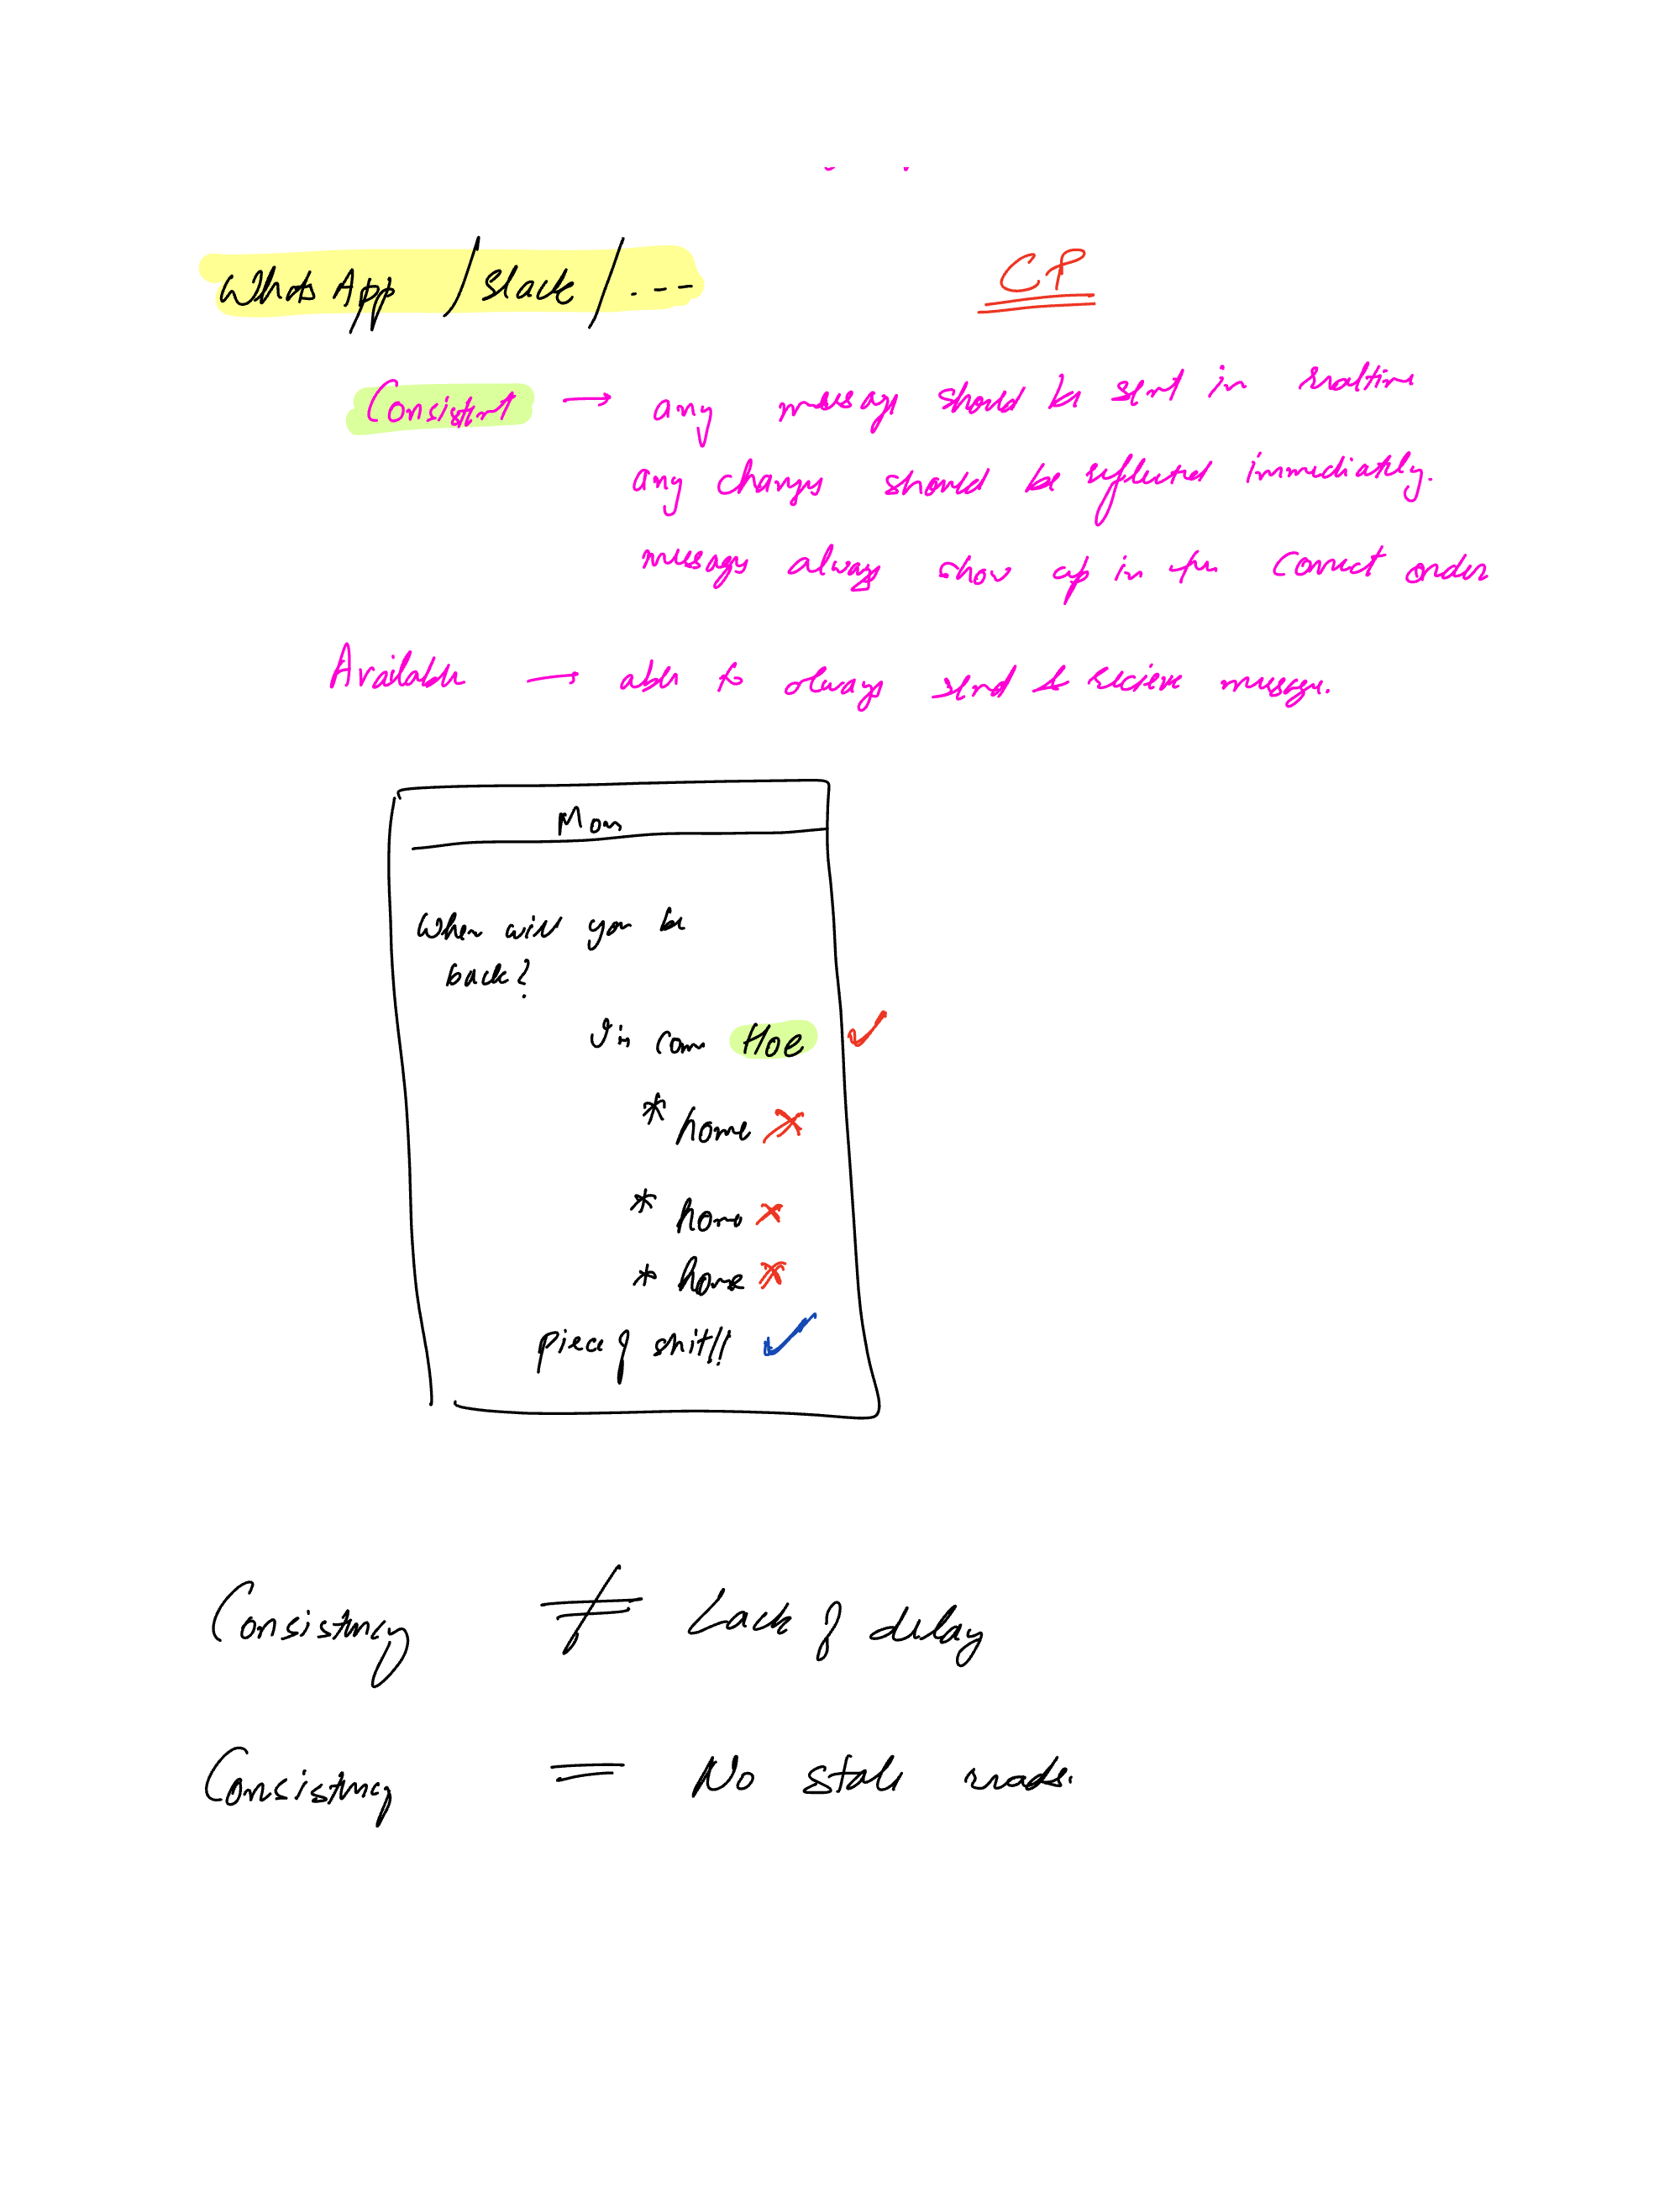 WhatsApp / Slack / ---
CP
Consistent → any message should be sent in realtime
any changes should be reflected immediately.
messages always show up in the correct order
Available → able to always send & recieve message.
Mom
When will you be
back?
I'm com Hoe ✓
* home ✗
* home ✗
* home ✗
piece of shit!! ✓
Consistency ≠ Lack of delay
Consistency = No stale reads.